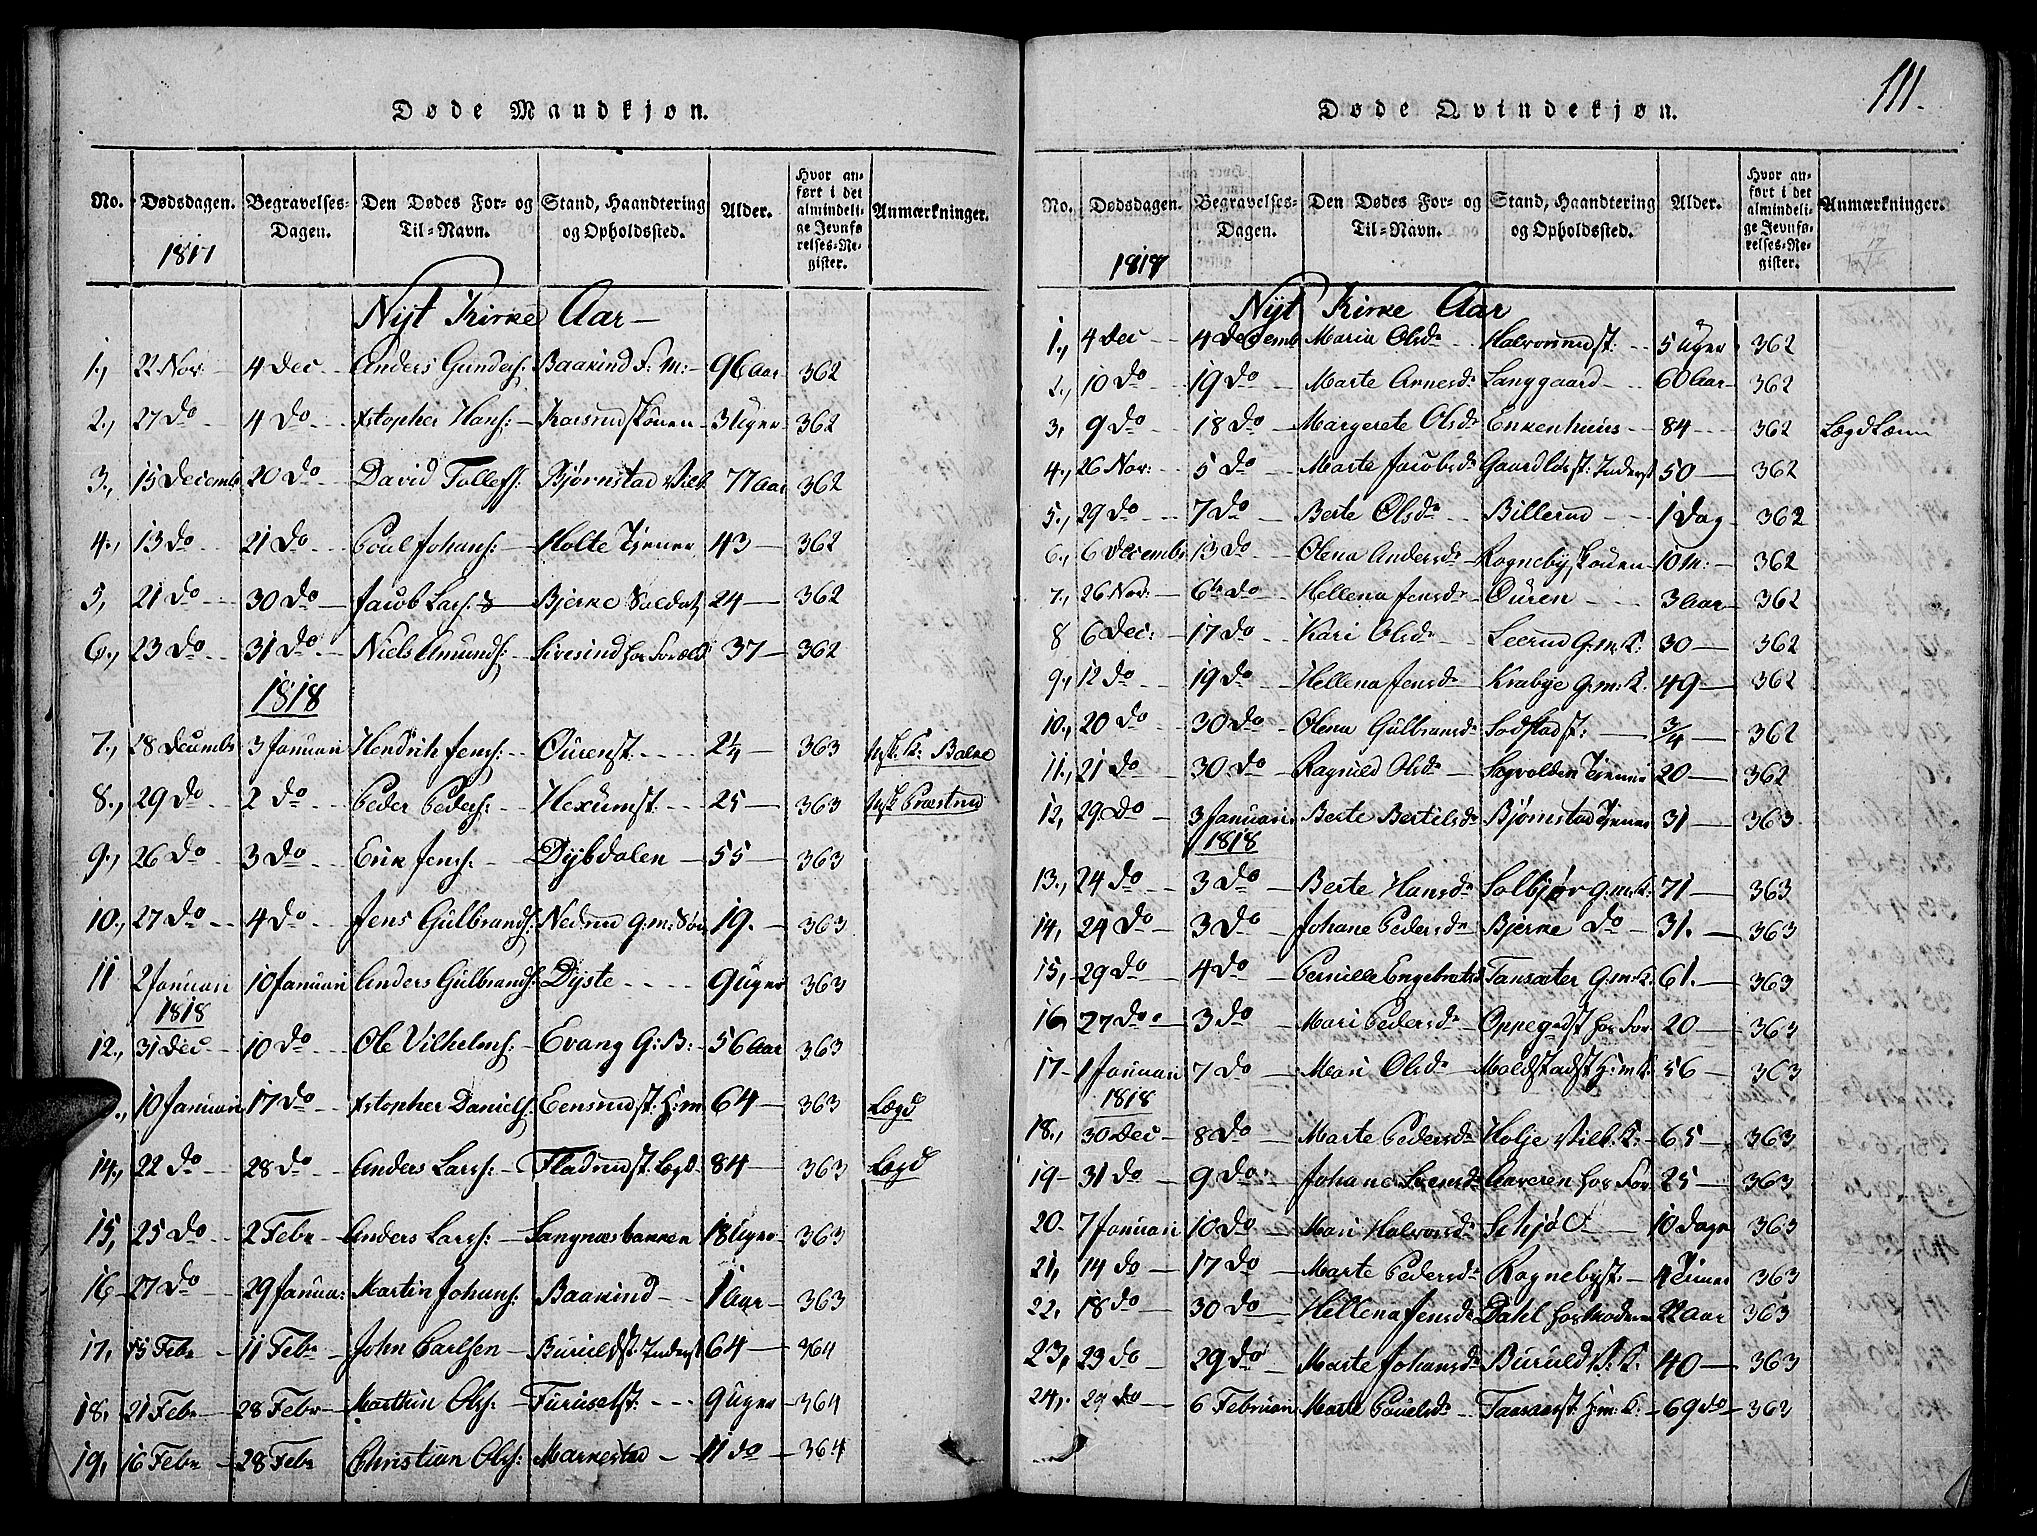 Døde Mandkjøn.
No. Dødsdagen. Begravelses-Dagen. Den Dødes For- og Til-Navn. Stand, Haandtering og Opholdssted. Alder. Hvor anført i det almindelige Jevnførelses-Register. Anmærkninger.
1817
Nyt Kirke Aar
1., 22 Nov 4 Dec Anders Gunders: Baarind F: M: 96 Aar 362
2., 27 Do 4 Do Xstopher Hans: 3 Uger 362
3., 15 Decemb 20 Do David Tollefs: Bjørnstad Vilb. 77 Aar 362
4., 13 Do 21 Do Poul Johans: Holte Tjener 43 362
5, 21 Do 30 Do Jacob Lars: Bjerke Soldat 24 362
6., 23 Do 31 Do Niels Amunds: Sivesind hos Foræld 37 362
1818
7., 28 Decembr 3 Januari Hendrik Jens: Ourenst 2¼ 363 Balke
8., 29 Do 2 Do Peder Peders: Hexumst 25 363 Præstrud
9., 26 Do 3 Do Erik Jens: Dybdalen 55 363
10., 27 Do 4 Do Jens Gulbrands: Nedrud G:m: Søn 19. 363
11 2 Januari 10 Januari Anders Gulbrands: Dyste 9 Uger 363
1818
12., 31 Dec 10 Do Ole Vilhelms: Evang G: B: 56 Aar 363
10 Januari 17 Do Xstopher Daniels: Eensrudst: H:m 64 363 Lægd
14., 22 Do 28 Do Anders Lars: Fladrudst: Lægd 84 363 Lægd
15, 25 Do 2 Febr Anders Lars: Langnæsbakken 18 Uger 363
16 27 Do 29 Janua: Martin Johans: Baarind 1 Aar 363
17, 15 Febr 11 Febr John Carlsen Buruldst: Inderst 64 364
18. 21 Febr 28 Febr Mathin Ols: Furuselst: 9 Uger 364
19, 16 Febr 28 Febr Christian Ols: Markestad 11 Do 364
111.
Døde Qvindekjøn.
No. Dødsdagen. Begravelses-Dagen. Den Dødes For- og Til-Navn. Stand, Haandtering og Opholdssted. Alder. Hvor anført i det almindelige Jevnførelses-Register. Anmærkninger.
1817
Nyt Kirke Aar
1., 4 Dec 4 Decemb Maria Olsdr Halvorsrudst: 5 Uger 362
2., 10 Do 19 Do Marte Arnesdr Langgaard 60 Aar 362
3, 9 Do 18 Do Margerete Olsdr Enkenhuus 84 362 Lægdslem
4., 26 Nov: 5 Do Marte Jacobsdr Gaardlosst: Inderst 50 362
5., 29 Do 7 Do Berte Olsdr Billerud 1 Dag 362
6., 6 Decembr 13 Do Olena Andersdr Rogneby Skouen 10 M: 362
7., 26 Nov: 6te Do Hellena Jensdr Ouren 3 Aar 362
8 6 Dec: 17 Do Kari Olsdr Leerud G:m:K: 30 362
9., 12 Do 19 Do Hellena Jensdr Krabye G:m:K: 49 362
10., 20 Do 30 Do Olena Gulbransdr Sodstadst: ¾ 362
11., 21 Do 30 Do Ragnild Olsdr Sogvolden Tjener 20 362
12, 29 Do 3 Januari Berte Bertilsdr Bjørnstad Tjener 31 363
1818
13., 24 Do 3 Do Berte Hansdr Solbjør G:m:K: 71 363
14, 24 Do 3 Do Johane Pedersdr Bjerke Do 31. 363
15, 29 Do 4 Do Pernille Engebretsd Tansæter G:m:K: 61. 363
16 27 Do 3 Do Mari Pedersdr Oppegdst hos For 20 363
17 1 Januari 7 Do Mari Olsdr Moldstadst H:m:K 56 363
1818
18., 30 Dec 8 Do Marte Pedersdr Holje Vilb: K: 65 363
19 31 Do 9 Do Johane Svensdr Aaveren hos For 25 363
20. 7 Januari 10 Do Mari Halvorsdr Schjøl 10 Dage 363
21, 14 Do 17 Do Marte Pedersdr Rognebyst: 4 Timer 363
22, 18 Do 30 Do Hellena Jensdr Dahl hos Moderen 22 Aar 363
23, 23 Do 29 Do Marte Johansdr Buruld V: K: 40 363
24, 29 Do 6 Februari Marte Povelsdr H:m: K: 69 Do 362